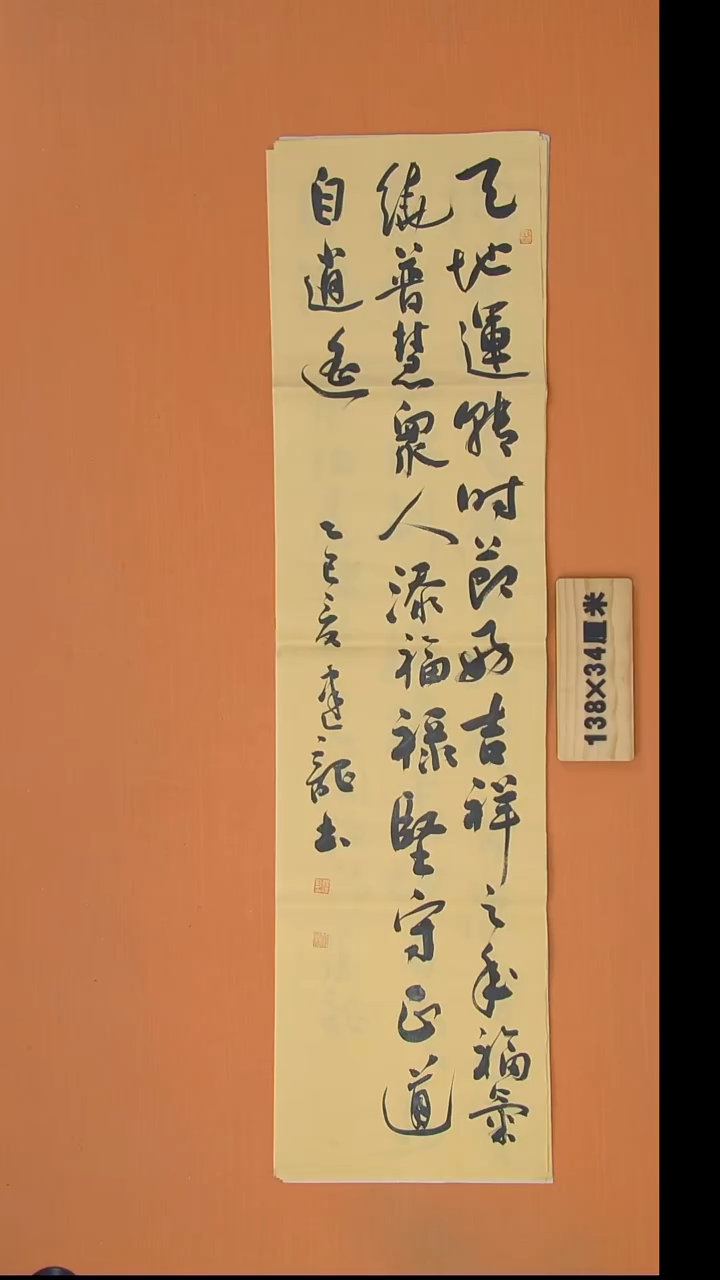 天地運轉时節好吉祥之年福氣
繞普慧眾人添福祿堅守正道
自逍遙
乙巳夏建龍书
138×34厘米